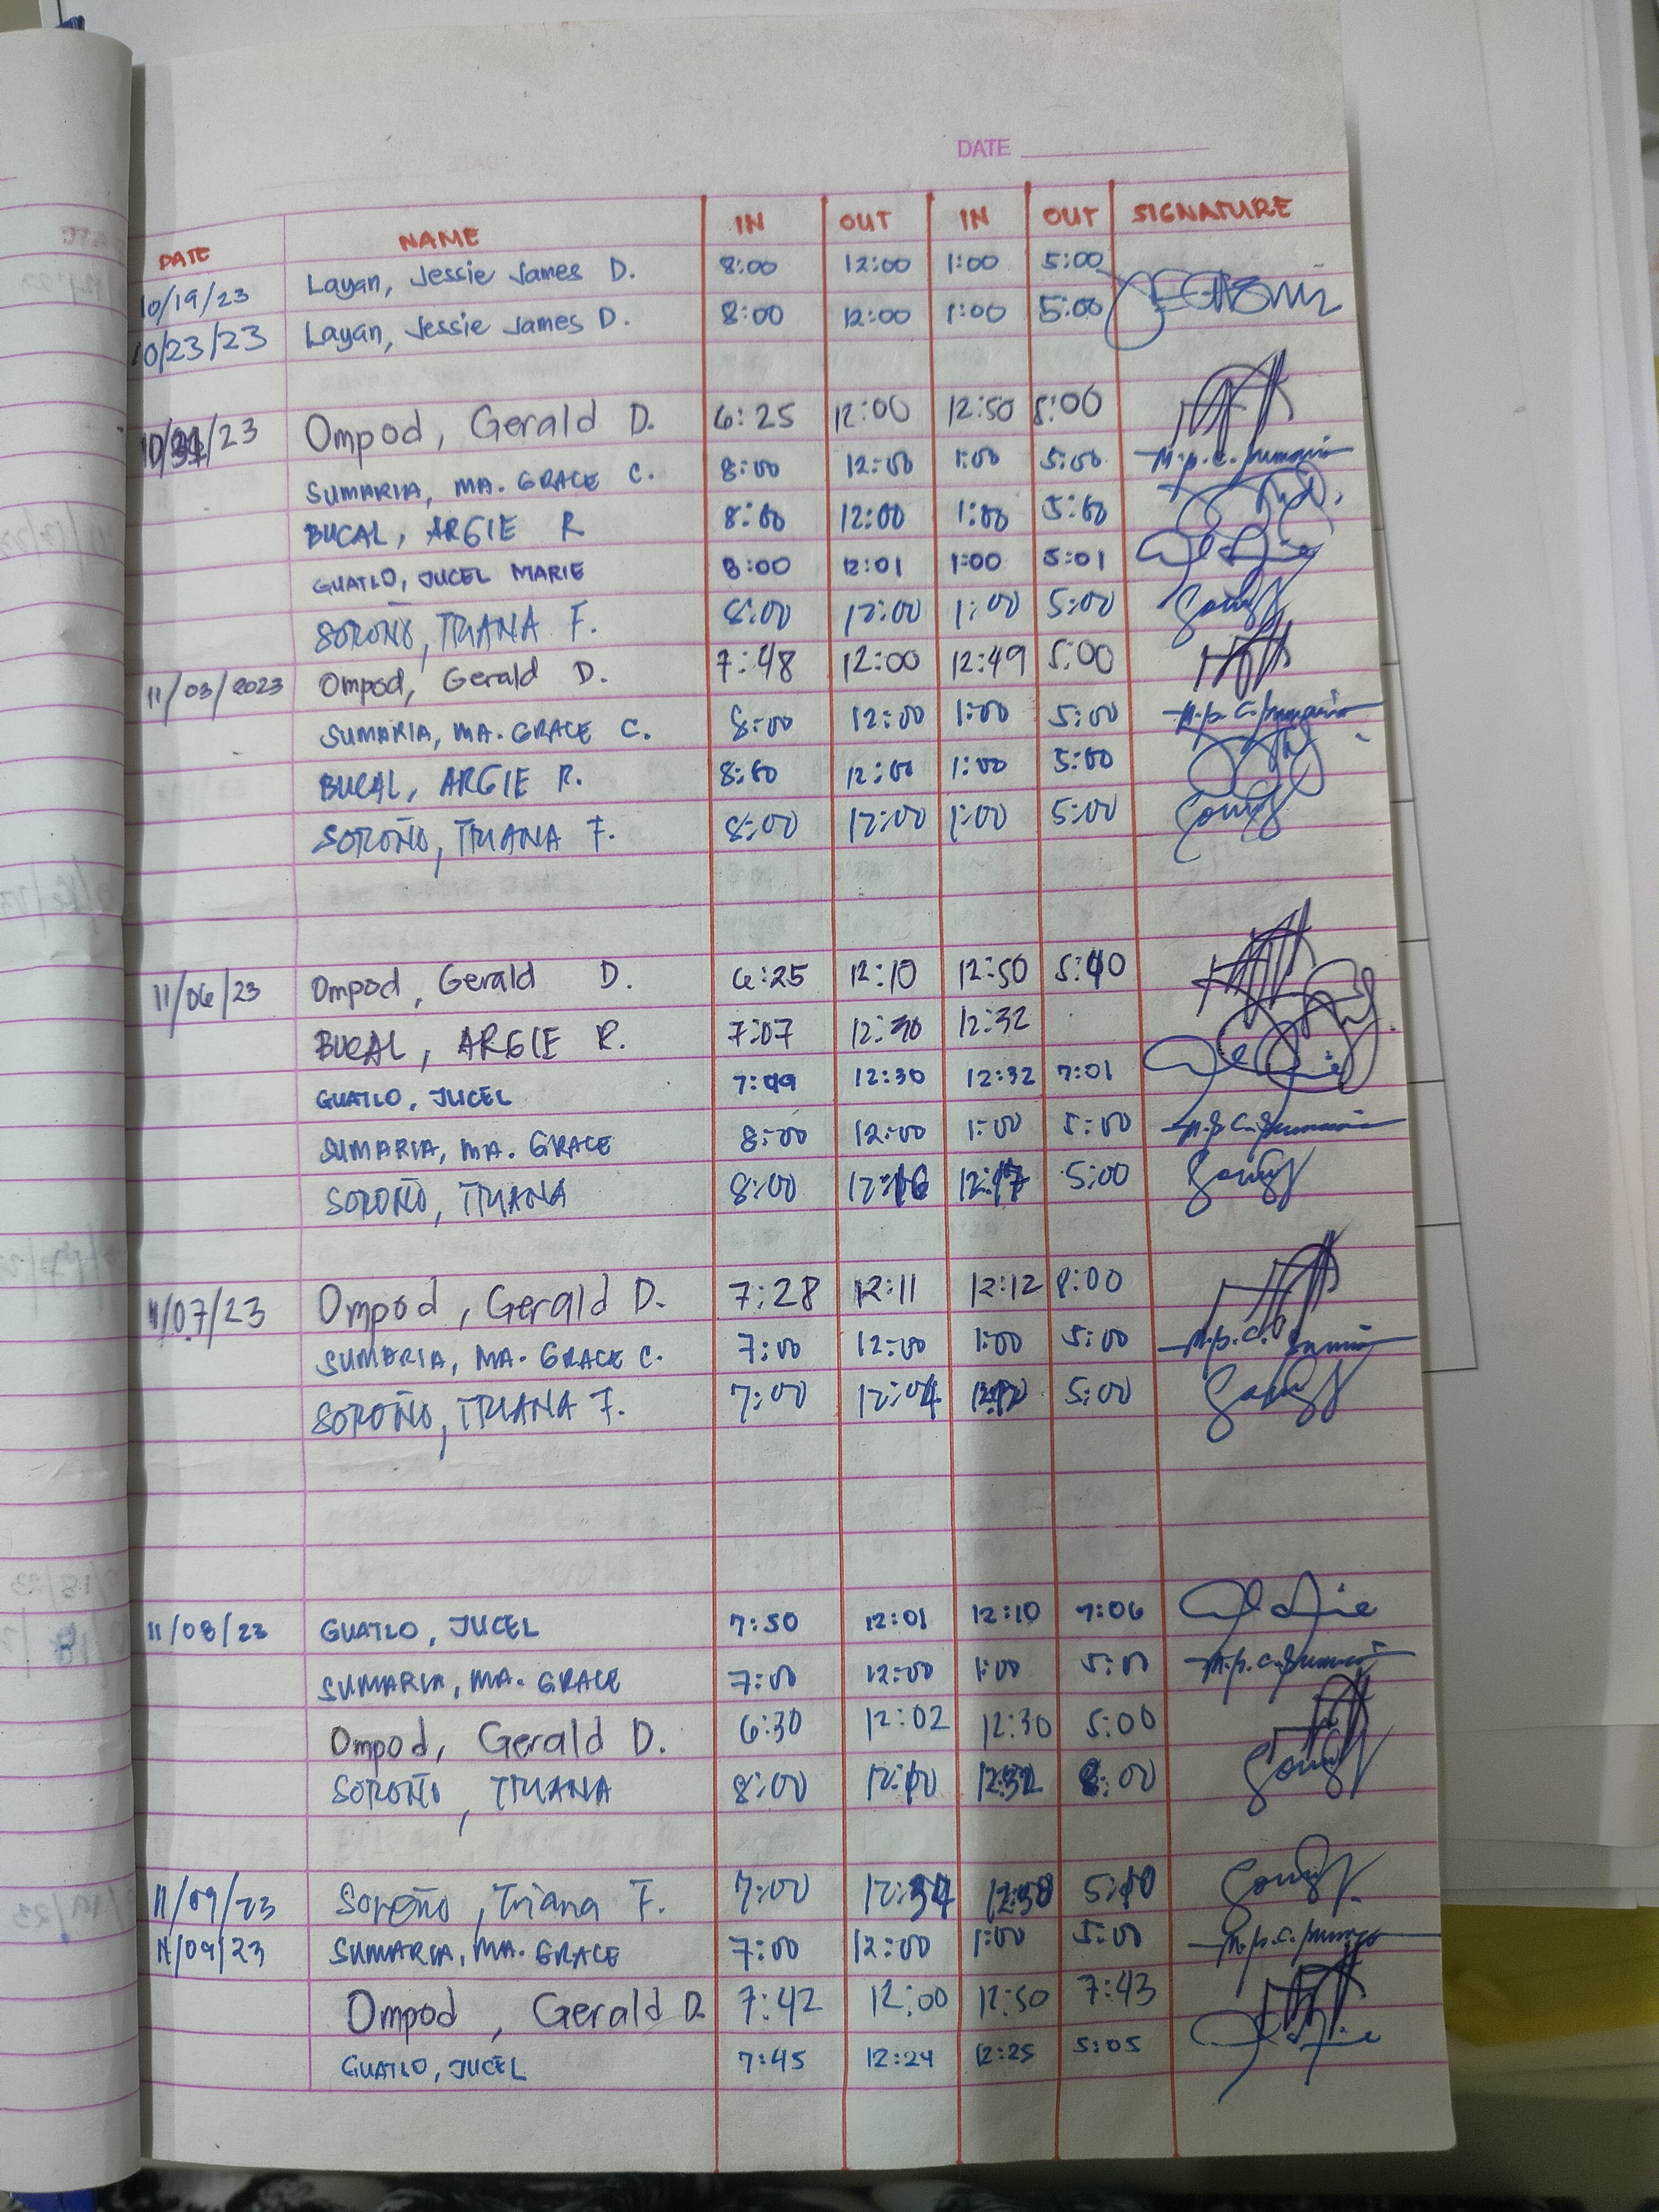 DATE
DATE NAME IN OUT IN OUT SIGNATURE
10/19/23 Layan, Jessie James D. 8:00 12:00 1:00 5:00
10/23/23 Layan, Jessie James D. 8:00 12:00 1:00 5:00
10/31/23 Ompod, Gerald D. 6:25 12:00 12:50 8:00
SUMARIA, MA. GRACE C. 8:00 12:00 1:00 5:00
BUCAL, ARGIE R 8:00 12:00 1:00 5:00
GUATLO, JUCEL MARIE 8:00 12:01 1:00 5:01
SOROÑO, TRIANA F. 8:00 12:00 1:00 5:00
11/03/2023 Ompod, Gerald D. 7:48 12:00 12:49 5:00
SUMARIA, MA. GRACE C. 8:00 12:00 1:00 5:00
BUCAL, ARGIE R. 8:00 12:00 1:00 5:00
SOROÑO, TRIANA F. 8:00 12:00 1:00 5:00
11/06/23 Ompod, Gerald D. 6:25 12:10 12:50
BUCAL, ARGIE R. 7:07 12:30 12:32
GUATLO, JUCEL 7:49 12:30 12:32 7:01
SUMARIA, MA. GRACE 8:00 12:00 1:00 5:00
SOROÑO, TRIANA 8:00 12:16 12:17 5:00
11/07/23 Ompod, Gerald D. 7:28 12:11 12:12 8:00
SUMARIA, MA. GRACE C. 7:00 12:00 1:00 5:00
SOROÑO, TRIANA F. 7:00 12:04 5:00
11/08/23 GUATLO, JUCEL 7:50 12:01 12:10 7:06
SUMARIA, MA. GRACE 7:00 12:00 1:00 5:00
Ompod, Gerald D. 6:30 12:02 12:30 5:00
SOROÑO, TRIANA 8:00 12:10 12:32 8:00
11/09/23 Soroño, Triana F. 7:00 12:34 12:38 5:10
11/09/23 SUMARIA, MA. GRACE 7:00 12:00 1:00 5:00
Ompod, Gerald D. 7:42 12:00 12:50 7:43
GUATLO, JUCEL 7:45 12:24 12:25 5:05